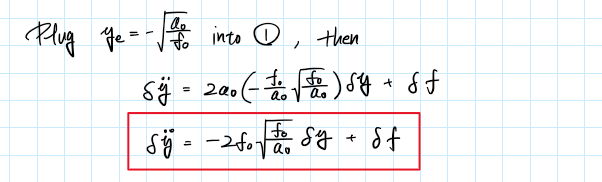 Plug yₑ = -√(a₀/f₀) into ①, then
δÿ = 2a₀(-f₀/a₀ √(f₀/a₀))δy + δf
δÿ = -2f₀√(f₀/a₀) δy + δf